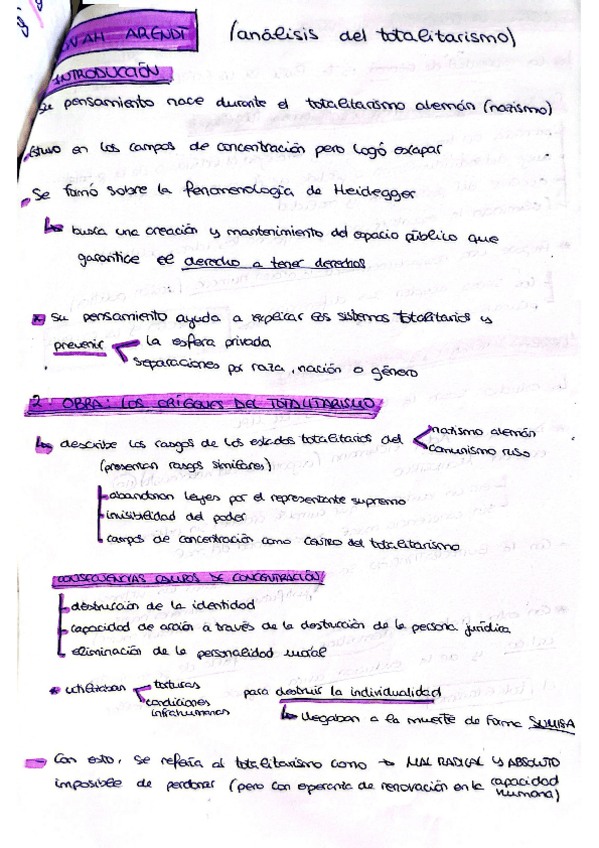 NAH ARENDT (análisis del totalitarismo)
INTRODUCCIÓN
Su pensamiento nace durante el totalitarismo alemán (nazismo)
Estuvo en los campos de concentración pero logó escapar
Se formó sobre la fenomenología de Heidegger
busca una creación y mantenimiento del espacio público que
garantice el derecho a tener derechos
* Su pensamiento ayuda a explicar los sistemas totalitarios y
prevenir la esfera privada
separaciones por raza, nación o género
2. OBRA: LOS ORÍGENES DEL TOTALITARISMO
describe los rasgos de los estados totalitarios del nazismo alemán
comunismo ruso
(presentan rasgos similares)
abandonan leyes por el representante supremo
invisibilidad del poder
campos de concentración como CENTRO del totalitarismo
CONSECUENCIAS CAMPOS DE CONCENTRACIÓN
destrucción de la identidad
capacidad de acción a través de la destrucción de la persona jurídica
eliminación de la personalidad moral
* utilizaban torturas
condiciones infrahumanas
para destruir la individualidad
llegaban a la muerte de forma SUMISA
Con esto, se refería al totalitarismo como → MAL RADICAL Y ABSOLUTO
imposible de perdonar (pero con esperanza de renovación en la capacidad
humana)